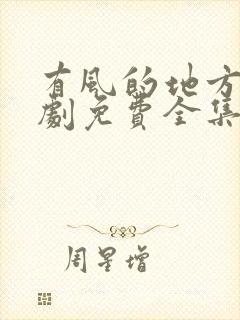 有风的地方
劇免費全集
周星增